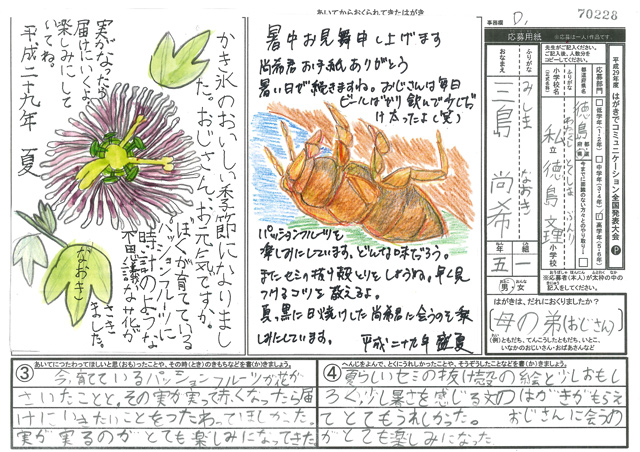 かき氷のおいしい季節になりまし
た。おじさん、お元気ですか。
ぼくが育てている
パッションフルーツに
時計のような
不思議な花が
さき
ました。
なおき
実がなったら
届けにいくよ。
楽しみにして
いてね。
平成二十九年 夏
あいてからおくられてきたはがき
暑中お見舞申し上げます
尚希君お手紙ありがとう
暑い日が続きますね。おじさんは毎日
ビールばかり飲んで少しだけ太ったよ(笑)
パッションフルーツを
楽しみにしています。どんな味だろう。
またセミの抜け殻とりをしようね。早く見
つけるコツを教えるよ。
真っ黒に日焼けした尚希君に会うのも楽
しみにしています。
平成二十九年 盛夏
事務欄
D,
70228
応募用紙
※応募は一人1作品です
先生がご記入ください。
ご記入後、人数分を
コピーしてください。
平成29年度
はがきでコミュニケーション全国発表大会
P
応募部門
低学年(1・2年)
中学年(3・4年)
高学年(5・6年)
都道府県名
徳島
都道府県
ふりがな
小学校名
(正式名称)
わたくしりつ とくしま ぶんり
私立徳島文理
小学校
ふりがな
おなまえ
みしま なおき
三島 尚希
五
年
組
男/女
はがきは、だれにおくりましたか?
母の弟(おじさん)
(例)ともだち、てんこうしたともだち、いとこ、
いなかのおじいさん・おばあさんなど
③ あいてにつたわってほしいと思(おも)ったことや、その時(とき)のきもちなどを書(か)きましょう。
今、育てているパッションフルーツの花が
さいたことと、その実が実って赤くなったら届
けにいきたいことをつたわってほしかった。
実が実るのがとても楽しみになってきた。
④ へんじをよんで、とくにうれしかったことや、そうぞうしたことなどを書(か)きましょう。
夏らしいセミの抜け殻の絵と少しおもし
ろく、少し暑さを感じる文のはがきがもらえ
てとてもうれしかった。 おじさんに会うの
がとても楽しみになった